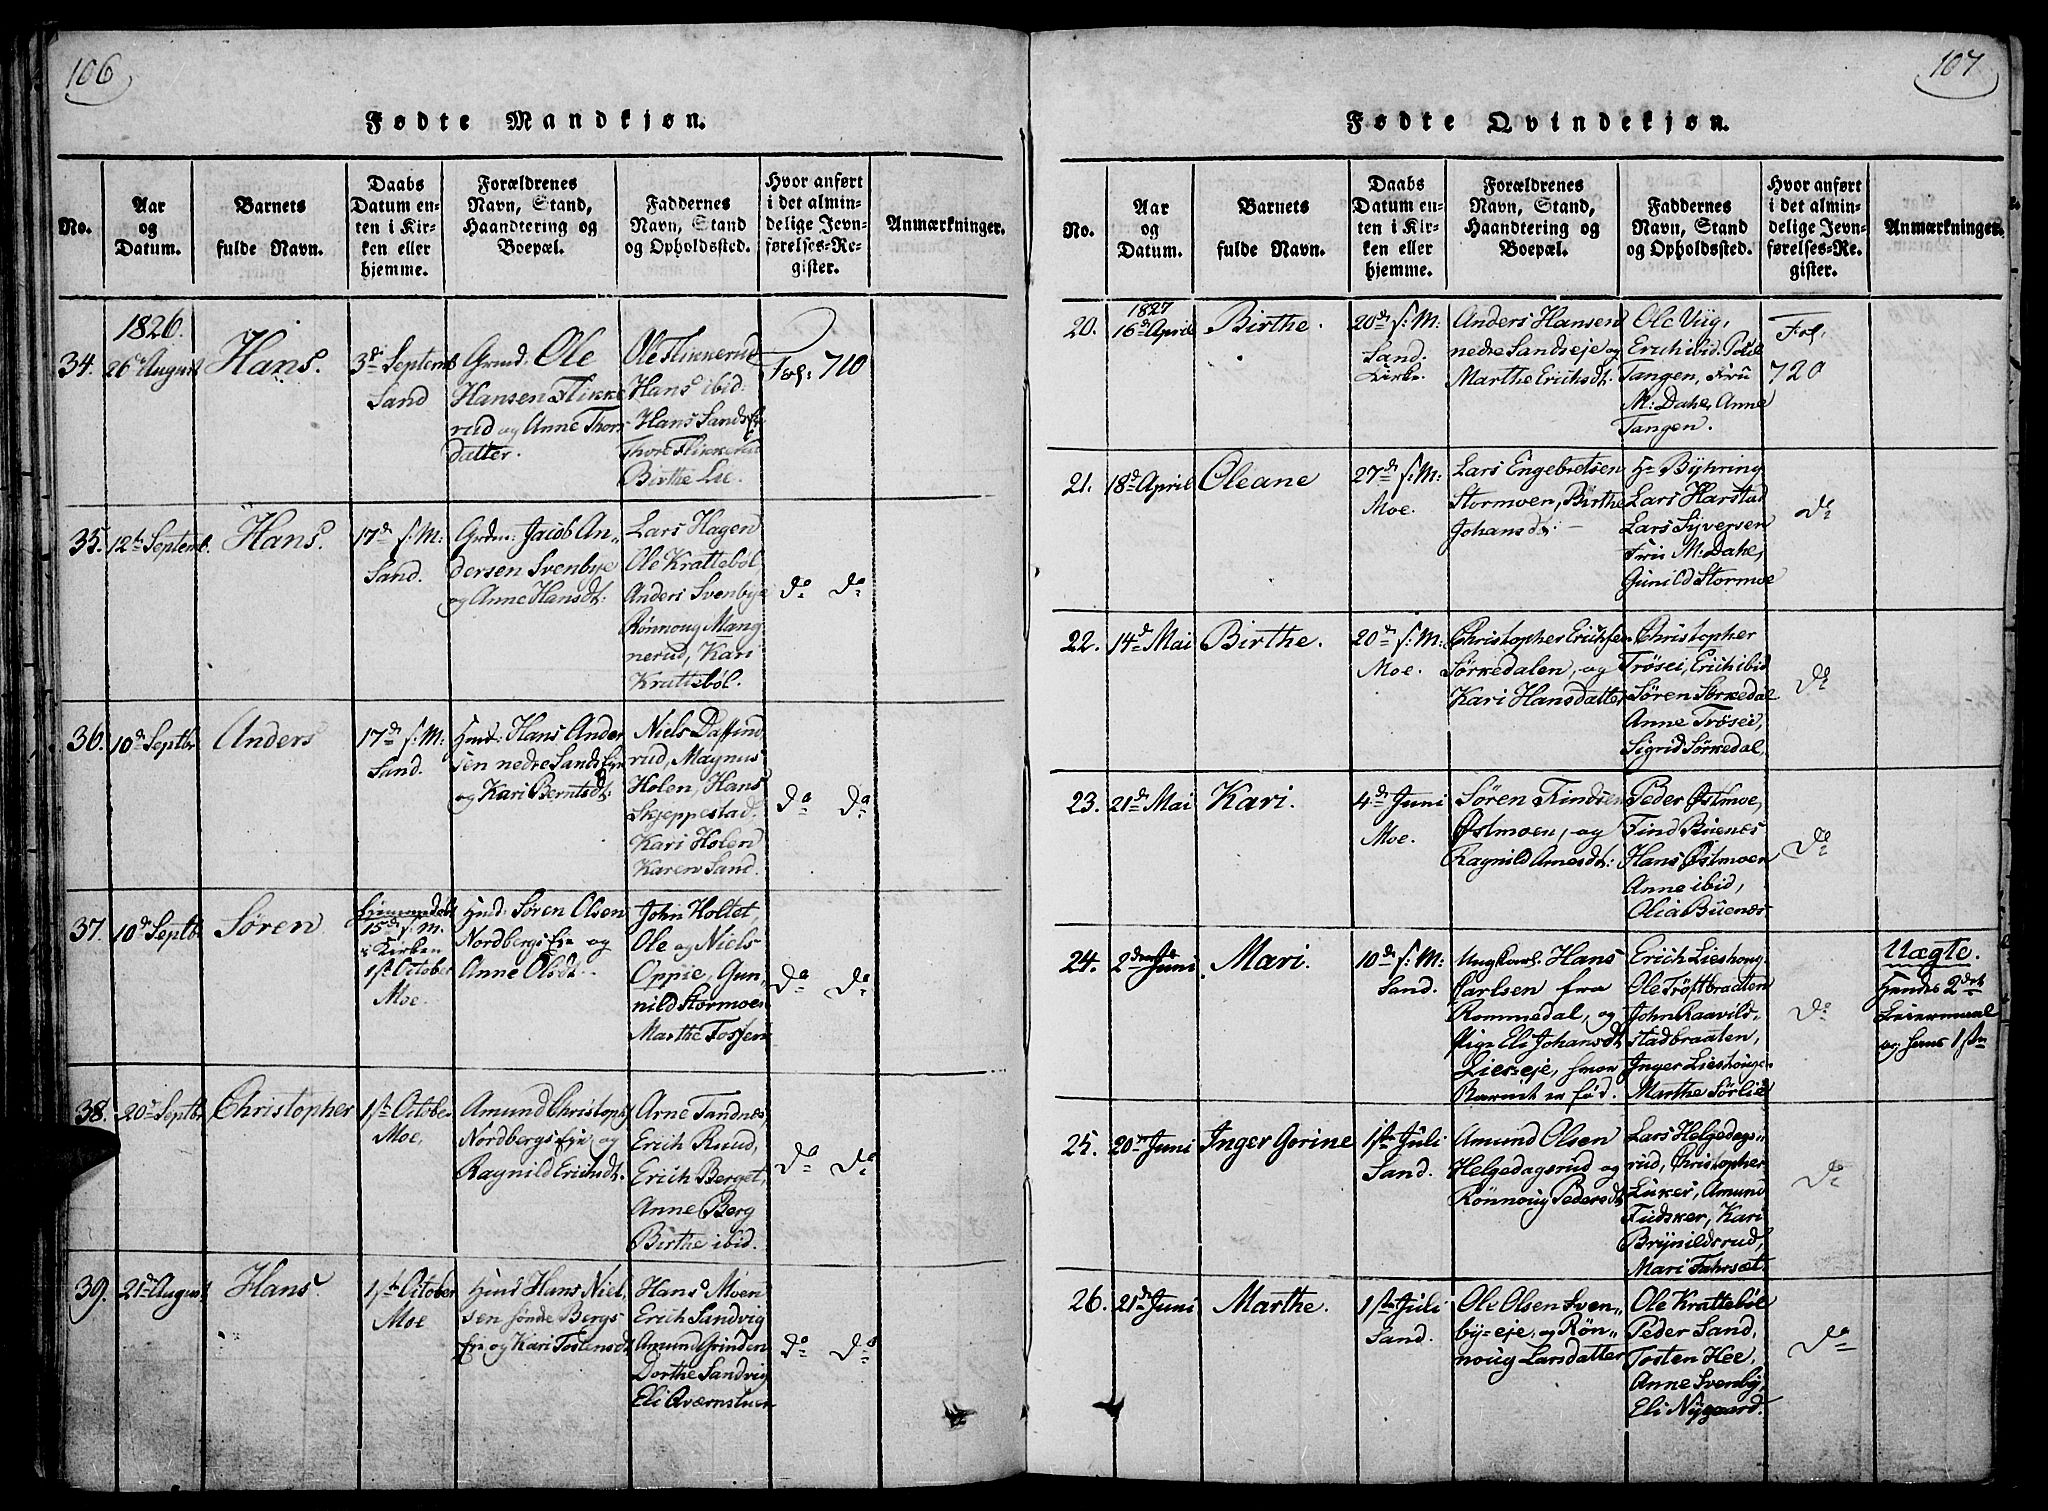 106
Fødte Mandkjøn.
No.
Aar
og
Datum.
Barnets
fulde Navn.
Daabs
Datum en-
ten i Kir-
ken eller
hjemme.
Forældrenes
Navn, Stand,
Haandtering og
Boepæl.
Faddernes
Navn, Stand
og Opholdssted.
Hvor anført
i det almin-
delige Jevn-
førelses-Re-
gister.
Anmærkninger.
1826.
34.
26de August
Hans.
3de Septemb
Sand
Grmd: Ole
Hansen Flikke
rud og Anne Thors
datter.
Ole Flikkerud
Hans ibid:
Hans Sandsej
Thore Flikkerud
Birthe Lie.
Fol: 710
35.
12te Septemb.
Hans.
17de s: M:
Sand.
Grdm: Jacob An-
dersen Svenbye
og Anne Hansdt:
Lars Hagen
Ole Krattebøl,
Anders Svenbye
Rønnoug Mang
nerud, Kari
Krattebøl.
do do
36.
10de Septbr
Anders
17de s: M:
Sand.
Hmd: Hans Ander
sen nedre Sands Eje
og Kari Berntsdt:
Niels Daffind
rud, Magnus
Holen, Hans
Skjeppestad.
Kari Holen
Karen Sand.
do do
37.
10de Septbr.
Søren
15de s. m.
i Kirken
1ste October
Moe.
Hmd: Søren Olsen
Nordbergs Eje og
Anne Olsdt.
John Holtet,
Ole og Niels
Oppie, Gun-
nild Stormoen
Marthe Fossen
do do
38.
20de Septbr
Christopher
1ste October
Moe,
Amund Christoph
Nordbergs Eje og
Ragnild Erichsdt.
Arne Sandnes,
Erich Ruud,
Erich Berget,
Anne Berg
Birthe ibid.
do do
39.
21de August
Hans.
1ste October
Moe
Hmd Hans Niel,
sen søndre Bergs
Eje og Kari Tostensdt
Hans Moen
Erich Sandvig
Amund Grinden
Dorthe Sandvig
Eli Qværnstuen
do do
107
Fødte Qvindekjøn.
No.
Aar
og
Datum.
Barnets
fulde Navn.
Daabs
Datum en-
ten i Kir-
ken eller
hjemme.
Forældrenes
Navn, Stand,
Haandtering og
Boepæl.
Faddernes
Navn, Stand
og Opholdssted.
Hvor anført
i det almin-
delige Jevn-
førelses-Re-
gister.
Anmærkninger.
1827
20.
16de April
Birthe.
20de s: M:
Sand.
Kirke.
Anders Hansen
nedre Sandseje og
Marthe Erichsdt.
Ole Viig,
Erich ibid. Povel
Tangen, Fru
M: Dahl, Anne
Tangen.
Fol.
720
21.
18de April
Oleane
27de s: M:
Moe.
Lars Engebretsen
Stormoen, Birthe
Johansdt: —
Hr Byhring
Lars Harstad
Lars Syversen
Fru M: Dahl,
Gunild Stormoe
do
22.
14de Mai
Birthe.
20de s: M:
Moe.
Christopher Erichsen
Sørkedalen, og
Kari Hansdatter
Christopher
Trøsei, Erich ibid
Søren Sørkedal
Anne Trøsei,
Sigrid Sørkedal.
do
23.
21de Mai
Kari.
4de Juni
Moe.
Søren Findsen
Østmoen, og
Ragnild Arnesdt:
Peder Østmoe,
Find Buenes
Hans Østmoen
Anne ibid,
Olia Buenes
do
24.
2den Juni
Mari.
10de s: M:
Sand.
Ungkarl. Hans
Carlsen fra
Rommedal, og
Pige Eli Johansdt
Lierseje, hvor
Barnet er fød.
Erich Lieshoug
Ole Trøftbraaten
John Raavild-
stadbraaten,
Inger Lieshouge
Marthe Sørlie
do
Uægte.
Hendes 2det
Leiermaal
og hans 1ste
25.
20de Juni
Inger Gorine
1ste Juli
Sand.
Amund Olsen
Helgedagsrud og
Rønnoug Pedersdt
Lars Helgedags-
rud, Christopher
Luker, Amund
Fudsker, Kari
Brynildsrud,
Mari Fahrsæt.
do
26.
21de Juni
Marthe.
1ste Juli
Sand.
Ole Olsen Sven-
by-eje, og Røn-
noug Larsdatter
Ole Krattebøle
Peder Sand,
Tosten Hee,
Anne Svenby,
Eli Nygaard.
do